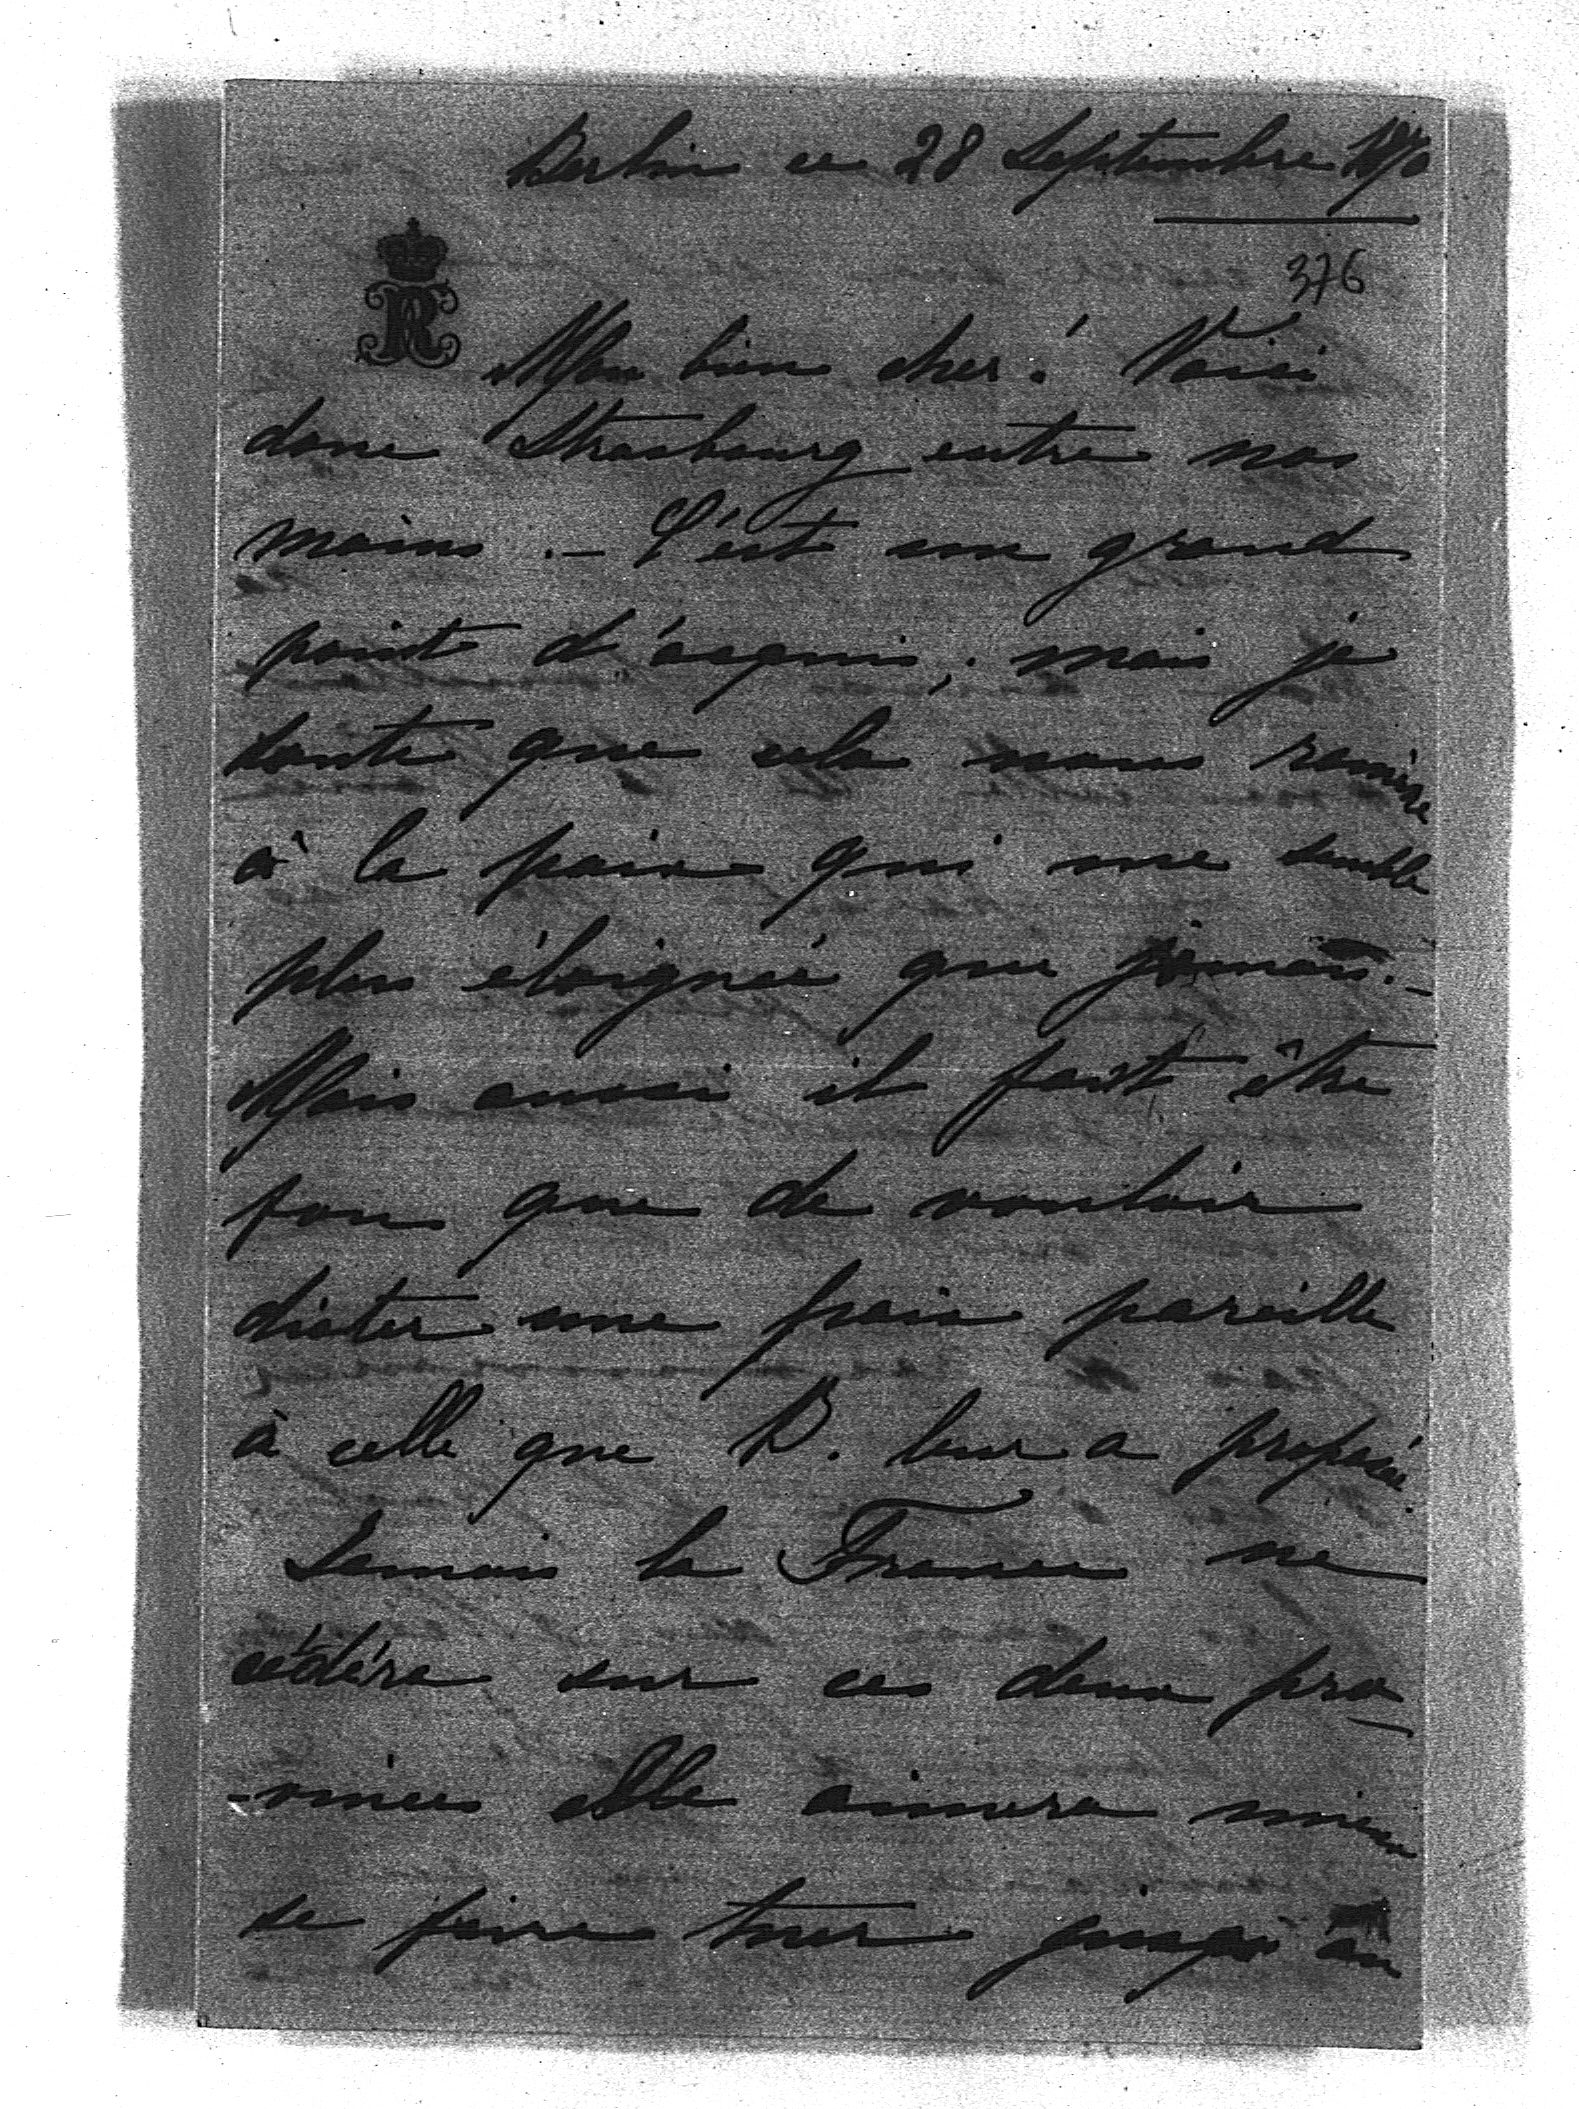 Berlin ce 28 Septembre 1870
376
R
Mon bien cher! Voici
donc Strasbourg entre nos
mains. – C'est un grand
point d'acquis, mais je
doute que cela nous ramène
à la paix qui me semble
plus éloignée que jamais. –
Mais aussi il faut être
fou que de vouloir
dicter une paix pareille
à celle que B. leur a proposée
Jamais la France ne
cédéra sur ces deux pro-
-vinces elle aimera mieux
se faire tuer jusqu'au